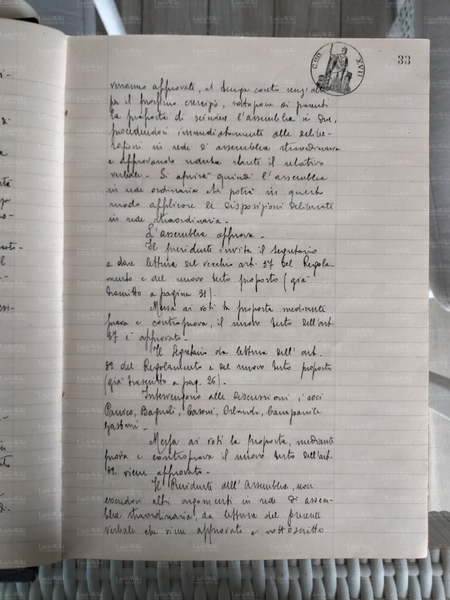 33
verranno approvate, si tenga conto
per il prossimo esercizio, sottopone ai presenti
la proposta di scindere l'assemblea in due,
procedendosi immediatamente alle delibe-
razioni in sede d'assemblea straordinaria
e approvando seduta stante il relativo
verbale. Si aprirà quindi l'assemblea
in sede ordinaria che potrà in questo
modo applicare le disposizioni deliberate
in sede straordinaria.
L'assemblea approva.
Il presidente invita il segretario
a dare lettura del vecchio art. 27 del Regola-
mento e del nuovo testo proposto (già
trascritto a pagina 31).
Messa ai voti la proposta mediante
prova e controprova, il nuovo testo dell'art.
27 è approvato.
Il Segretario da lettura dell'art.
32 del Regolamento e del nuovo testo proposto
(già trascritto a pag. 26).
Intervengono alle discussioni, i soci
Bagnoli, Casoni, Orlandi, Campanile
Messa ai voti la proposta, mediante
prova e controprova il nuovo testo dell'art.
32 viene approvato.
Il Presidente dell'Assemblea, non
essendovi altri argomenti in sede d'assem-
blea straordinaria, da lettura del presente
verbale che viene approvato e sottoscritto